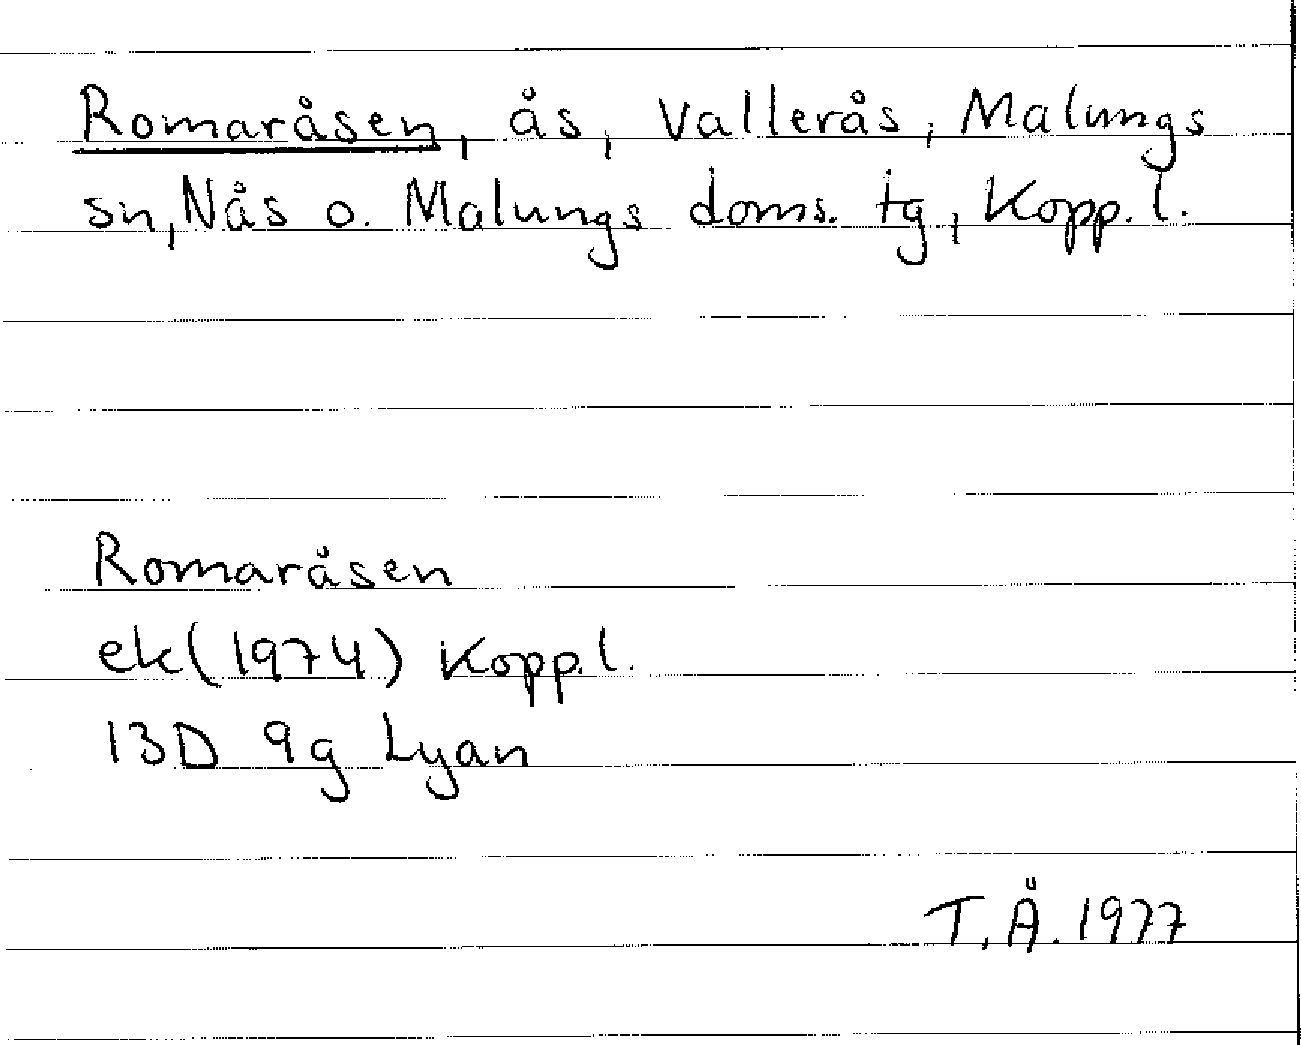 Romaråsen, ås, Vallerås, Malungs
sn, Nås o. Malungs doms. tg, Kopp. l.
Romaråsen
ek (1974) Kopp. l.
13D 9g Lyan
T. Å. 1977